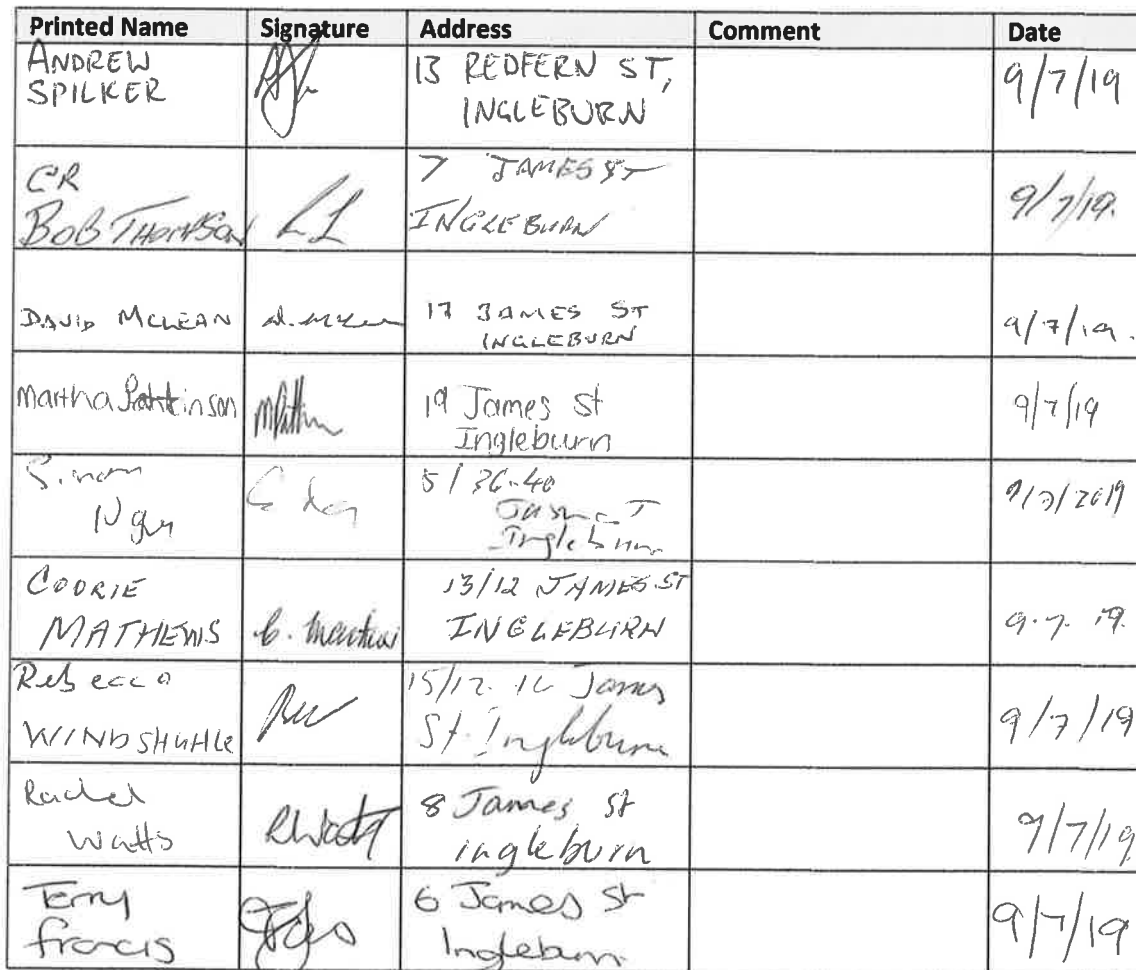 Printed Name Signature Address Comment Date
ANDREW
SPILKER
13 REDFERN ST,
INGLEBURN
9/7/19
CR
BOB THOMPSON
7 JAMES ST
INGLEBURN
9/7/19.
DAVID MCLEAN
17 JAMES ST
INGLEBURN
9/7/19.
Martha Pattinson
19 James St
Ingleburn
9/7/19
5/36-40
Ingleburn
9/7/2019
COORIE
MATHEWS
13/12 JAMES ST
INGLEBURN
9.7.19.
Rebecca
WINDSHUTTLE
15/12. James
St. Ingleburn
9/7/19
Rachel
Watts
RWatts
8 James St
ingleburn
9/7/19
Terry
francis
6 James St
Ingleburn
9/7/19